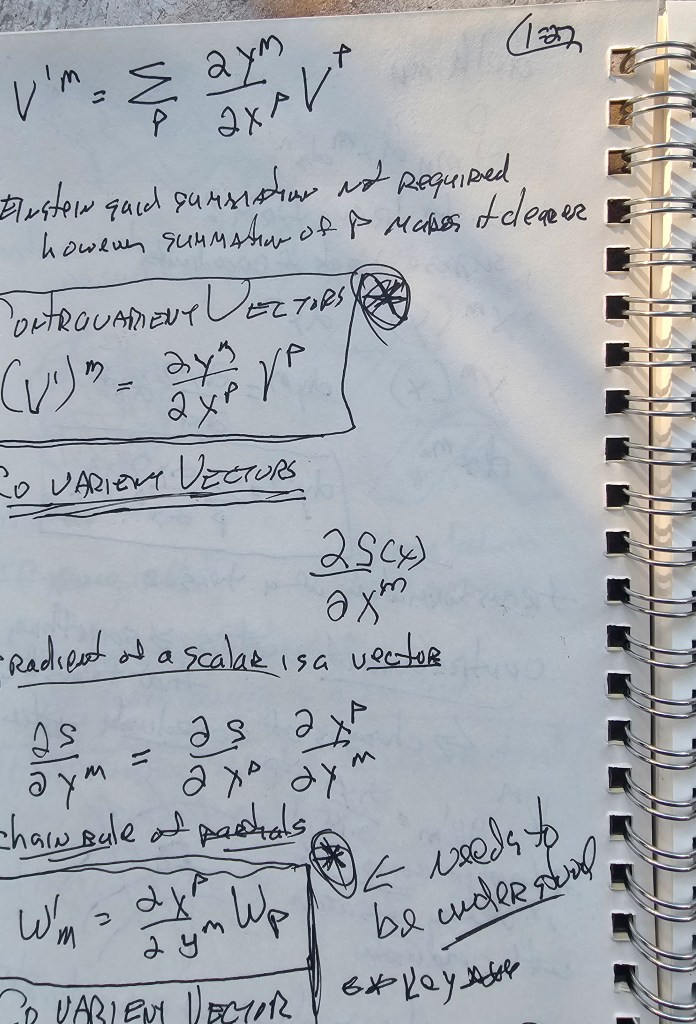 (1-27)
V'ᵐ = Σ_P ∂yᵐ/∂xᴾ Vᴾ
EINSTEIN said summation not required
however summation of P makes it clearer
CONTROVARIENT VECTORS ⊛
(V')ᵐ = ∂yᵐ/∂xᴾ Vᴾ
CO VARIENT VECTORS
∂S(x)/∂xᵐ
Gradient of a scalar is a vector
∂S/∂yᵐ = ∂S/∂xᴾ ∂xᴾ/∂yᵐ
chain rule of partials
W'ₘ = ∂xᴾ/∂yᵐ Wₚ
⊛ ← needs to
be understood
** Key ***
CO VARIENT VECTOR